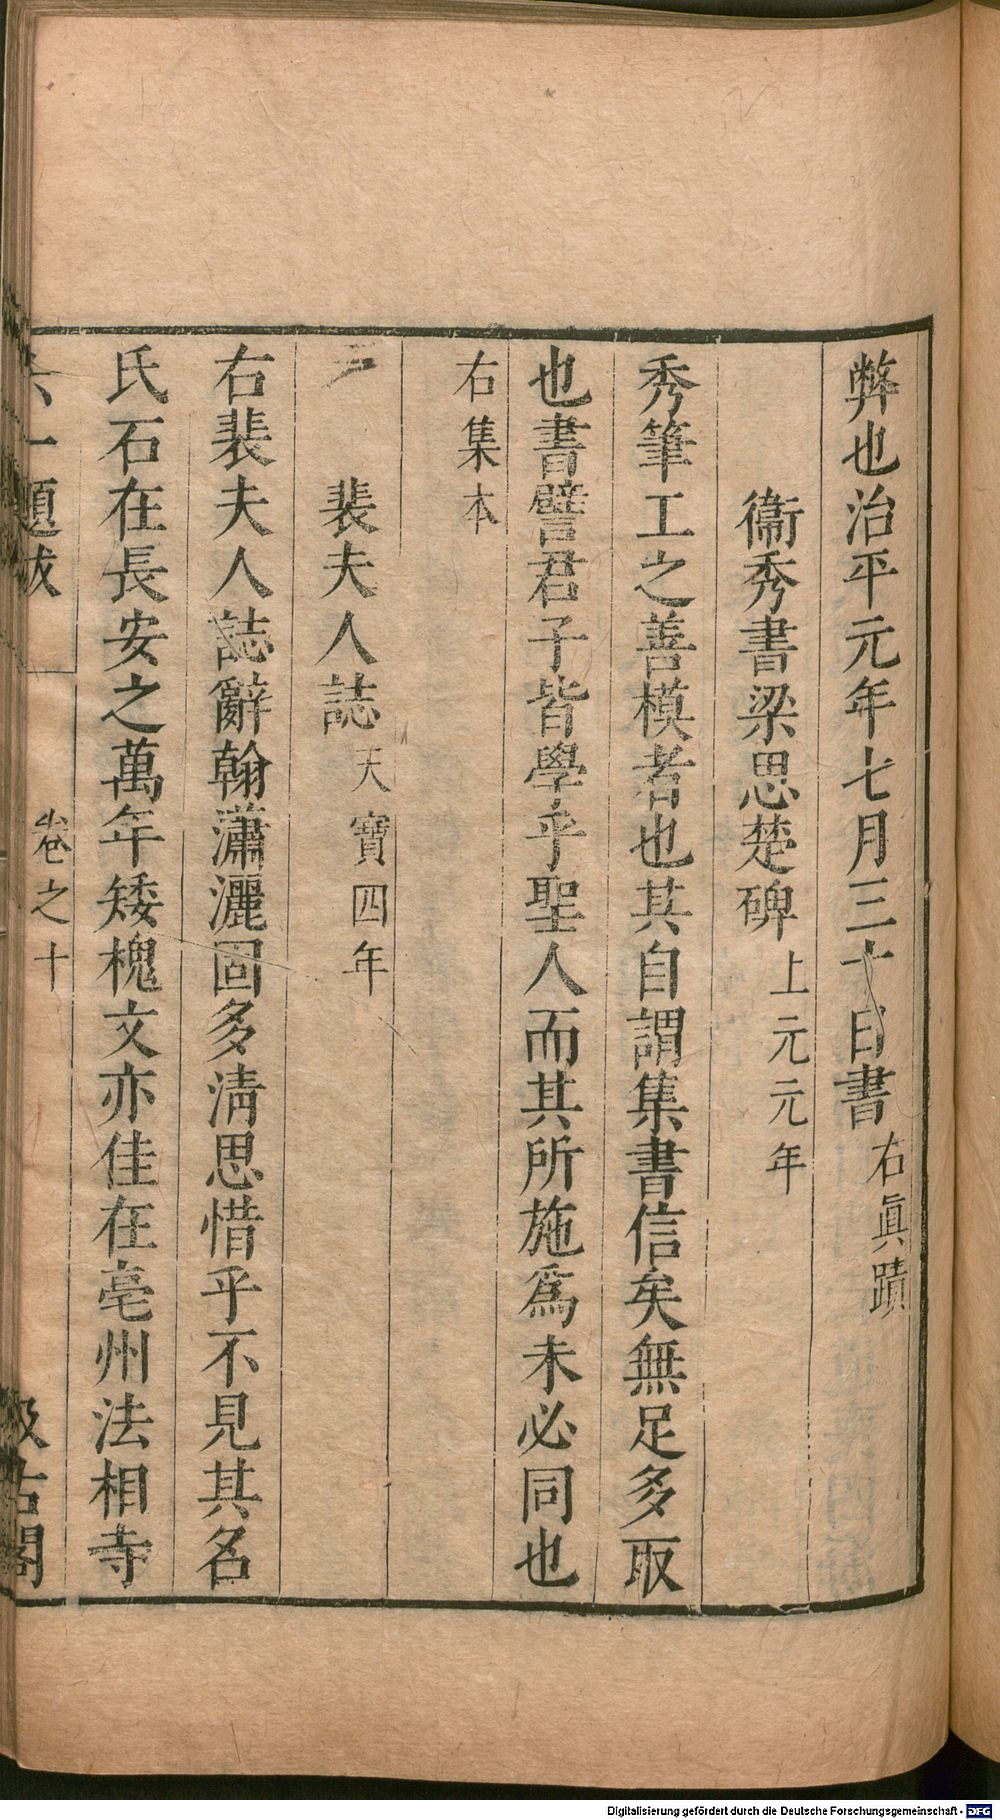 弊也治平元年七月三十日書右眞蹟
衞秀書梁思楚碑上元元年
秀筆工之善模者也其自謂集書信矣無足多取
也書譬君子皆學乎聖人而其所施爲未必同也
右集本
裴夫人誌天寶四年
右裴夫人誌辭翰瀟灑固多淸思惜乎不見其名
氏石在長安之萬年矮槐文亦佳在亳州法相寺
六一題跋 卷之十 汲古閣
Digitalisierung gefördert durch die Deutsche Forschungsgemeinschaft - DFG